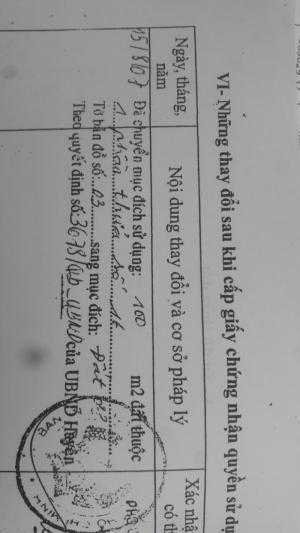 VI- Những thay đổi sau khi cấp giấy chứng nhận quyền sử dụ
Ngày, tháng,
năm
Nội dung thay đổi và cơ sở pháp lý
Xác nhậ
có th
15/8/07
Đã chuyển mục đích sử dụng: 100 m2 đất thuộc
1 phần thửa
Tờ bản đồ số...03...sang mục đích: Đất ở
Theo quyết định số:3678/QĐ-UBND của UBND Huyện